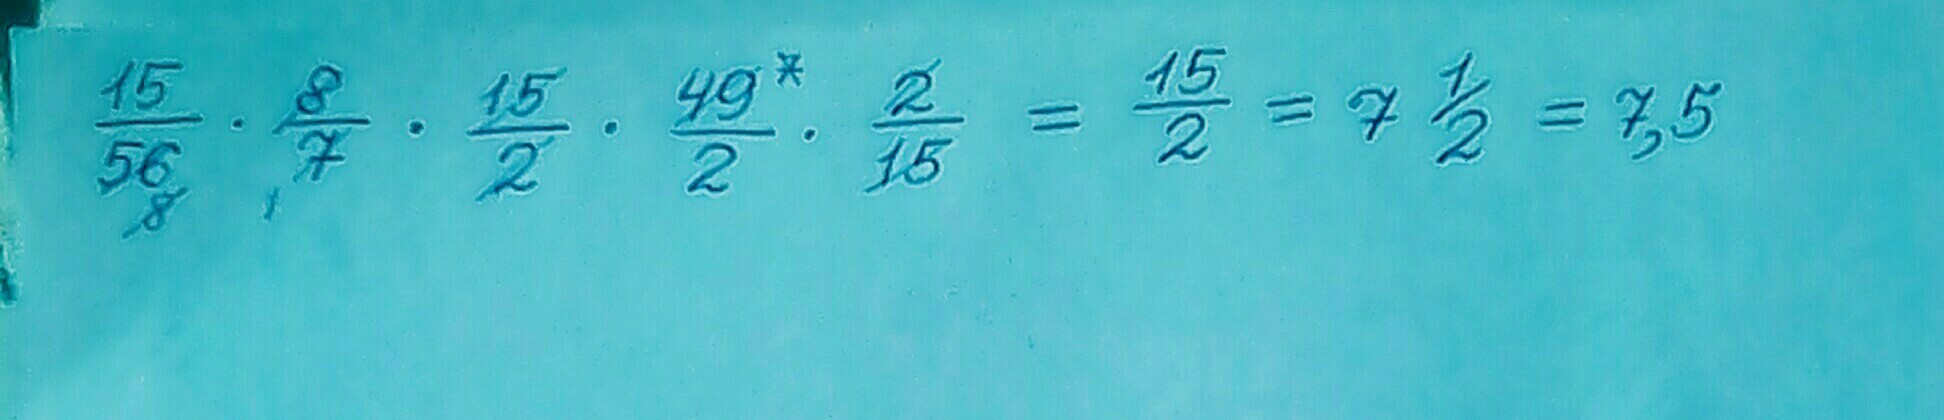 15/56 · 8/7 · 15/2 · 49/2 · 2/15 = 15/2 = 7 1/2 = 7,5
8 1 7